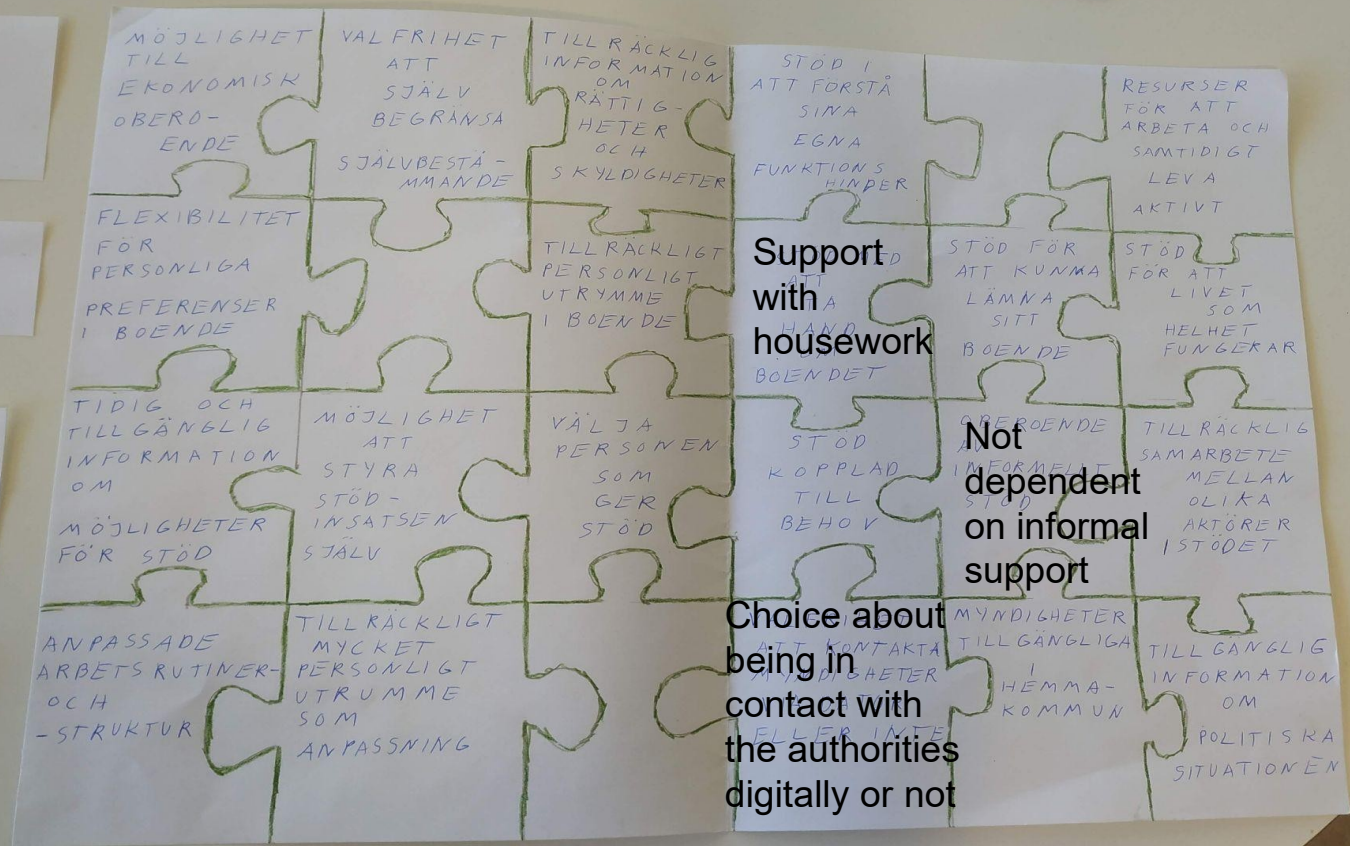 MÖJLIGHET
TILL
EKONOMISK
OBERO-
ENDE
VALFRIHET
ATT
SJÄLV
BEGRÄNSA
SJÄLVBESTÄ-
MMANDE
TILLRÄCKLIG
INFORMATION
OM
RÄTTIG-
HETER
OCH
SKYLDIGHETER
STÖD I
ATT FÖRSTÅ
SINA
EGNA
FUNKTIONS
HINDER
RESURSER
FÖR ATT
ARBETA OCH
SAMTIDIGT
LEVA
AKTIVT
FLEXIBILITET
FÖR
PERSONLIGA
PREFERENSER
I BOENDE
TILLRÄCKLIGT
PERSONLIGT
UTRYMME
I BOENDE
Support
with
housework
ATT
HAND
BOENDET
STÖD FÖR
ATT KUNNA
LÄMNA
SITT
BOENDE
STÖD
FÖR ATT
LIVET
SOM
HELHET
FUNGERAR
TIDIG OCH
TILLGÄNGLIG
INFORMATION
OM
MÖJLIGHETER
FÖR STÖD
MÖJLIGHET
ATT
STYRA
STÖD-
INSATSEN
SJÄLV
VÄLJA
PERSONEN
SOM
GER
STÖD
STÖD
KOPPLAD
TILL
BEHOV
OBEROENDE
INFORMELLT
STÖD
Not
dependent
on informal
support
TILLRÄCKLIG
SAMARBETE
MELLAN
OLIKA
AKTÖRER
I STÖDET
ANPASSADE
ARBETSRUTINER-
OCH
-STRUKTUR
TILLRÄCKLIGT
MYCKET
PERSONLIGT
UTRUMME
SOM
ANPASSNING
Choice about
being in
contact with
the authorities
digitally or not
ATT KONTAKTA
MYNDIGHETER
ELLER INTE
MYNDIGHETER
TILLGÄNGLIGA
I
HEMMA-
KOMMUN
TILLGÄNGLIG
INFORMATION
OM
POLITISKA
SITUATIONEN